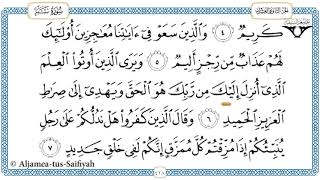 كَرِيمٌ ٤ وَالَّذِينَ سَعَوْ فِي ءَايَاتِنَا مُعَاجِزِينَ أُولَٰئِكَ
لَهُمْ عَذَابٌ مِن رِّجْزٍ أَلِيمٌ ٥ وَيَرَى الَّذِينَ أُوتُوا الْعِلْمَ
الَّذِي أُنزِلَ إِلَيْكَ مِن رَّبِّكَ هُوَ الْحَقَّ وَيَهْدِي إِلَىٰ صِرَاطِ
الْعَزِيزِ الْحَمِيدِ ٦ وَقَالَ الَّذِينَ كَفَرُوا هَلْ نَدُلُّكُمْ عَلَىٰ رَجُلٍ
يُنَبِّئُكُمْ إِذَا مُزِّقْتُمْ كُلَّ مُمَزَّقٍ إِنَّكُمْ لَفِي خَلْقٍ جَدِيدٍ ٧
© Aljamea-tus-Saifiyah
٤٢٨